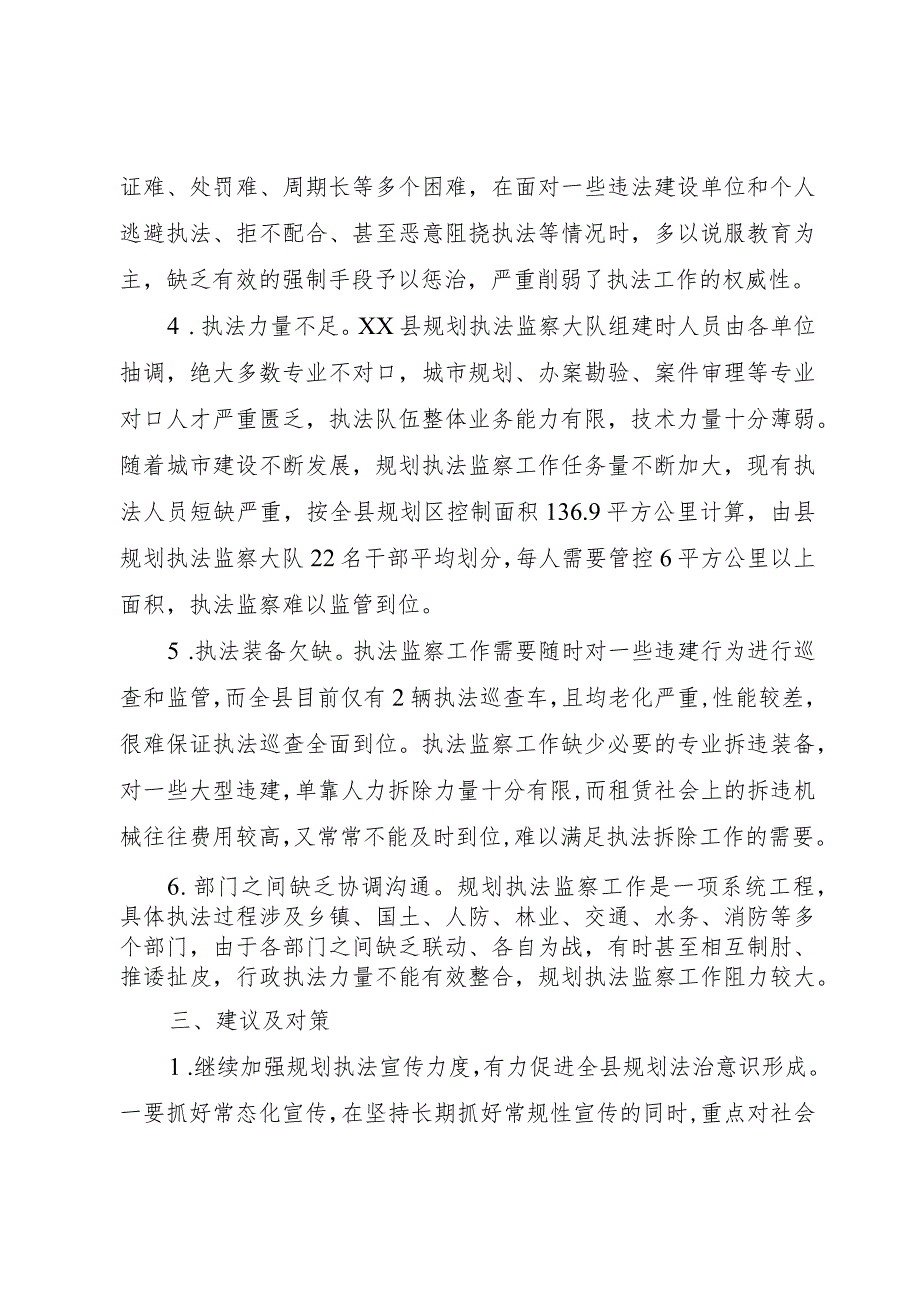 证难、处罚难、周期长等多个困难，在面对一些违法建设单位和个人
逃避执法、拒不配合、甚至恶意阻挠执法等情况时，多以说服教育为
主，缺乏有效的强制手段予以惩治，严重削弱了执法工作的权威性。
4 .执法力量不足。XX 县规划执法监察大队组建时人员由各单位
抽调，绝大多数专业不对口，城市规划、办案勘验、案件审理等专业
对口人才严重匮乏，执法队伍整体业务能力有限，技术力量十分薄弱。
随着城市建设不断发展，规划执法监察工作任务量不断加大，现有执
法人员短缺严重，按全县规划区控制面积 136.9 平方公里计算，由县
规划执法监察大队 22 名干部平均划分，每人需要管控 6 平方公里以上
面积，执法监察难以监管到位。
5 .执法装备欠缺。执法监察工作需要随时对一些违建行为进行巡
查和监管，而全县目前仅有 2 辆执法巡查车，且均老化严重，性能较差，
很难保证执法巡查全面到位。执法监察工作缺少必要的专业拆违装备，
对一些大型违建，单靠人力拆除力量十分有限，而租赁社会上的拆违机
械往往费用较高，又常常不能及时到位，难以满足执法拆除工作的需要。
6. 部门之间缺乏协调沟通。规划执法监察工作是一项系统工程，
具体执法过程涉及乡镇、国土、人防、林业、交通、水务、消防等多
个部门，由于各部门之间缺乏联动、各自为战，有时甚至相互制肘、
推诿扯皮，行政执法力量不能有效整合，规划执法监察工作阻力较大。
三、建议及对策
1 .继续加强规划执法宣传力度，有力促进全县规划法治意识形成。
一要抓好常态化宣传，在坚持长期抓好常规性宣传的同时，重点对社会